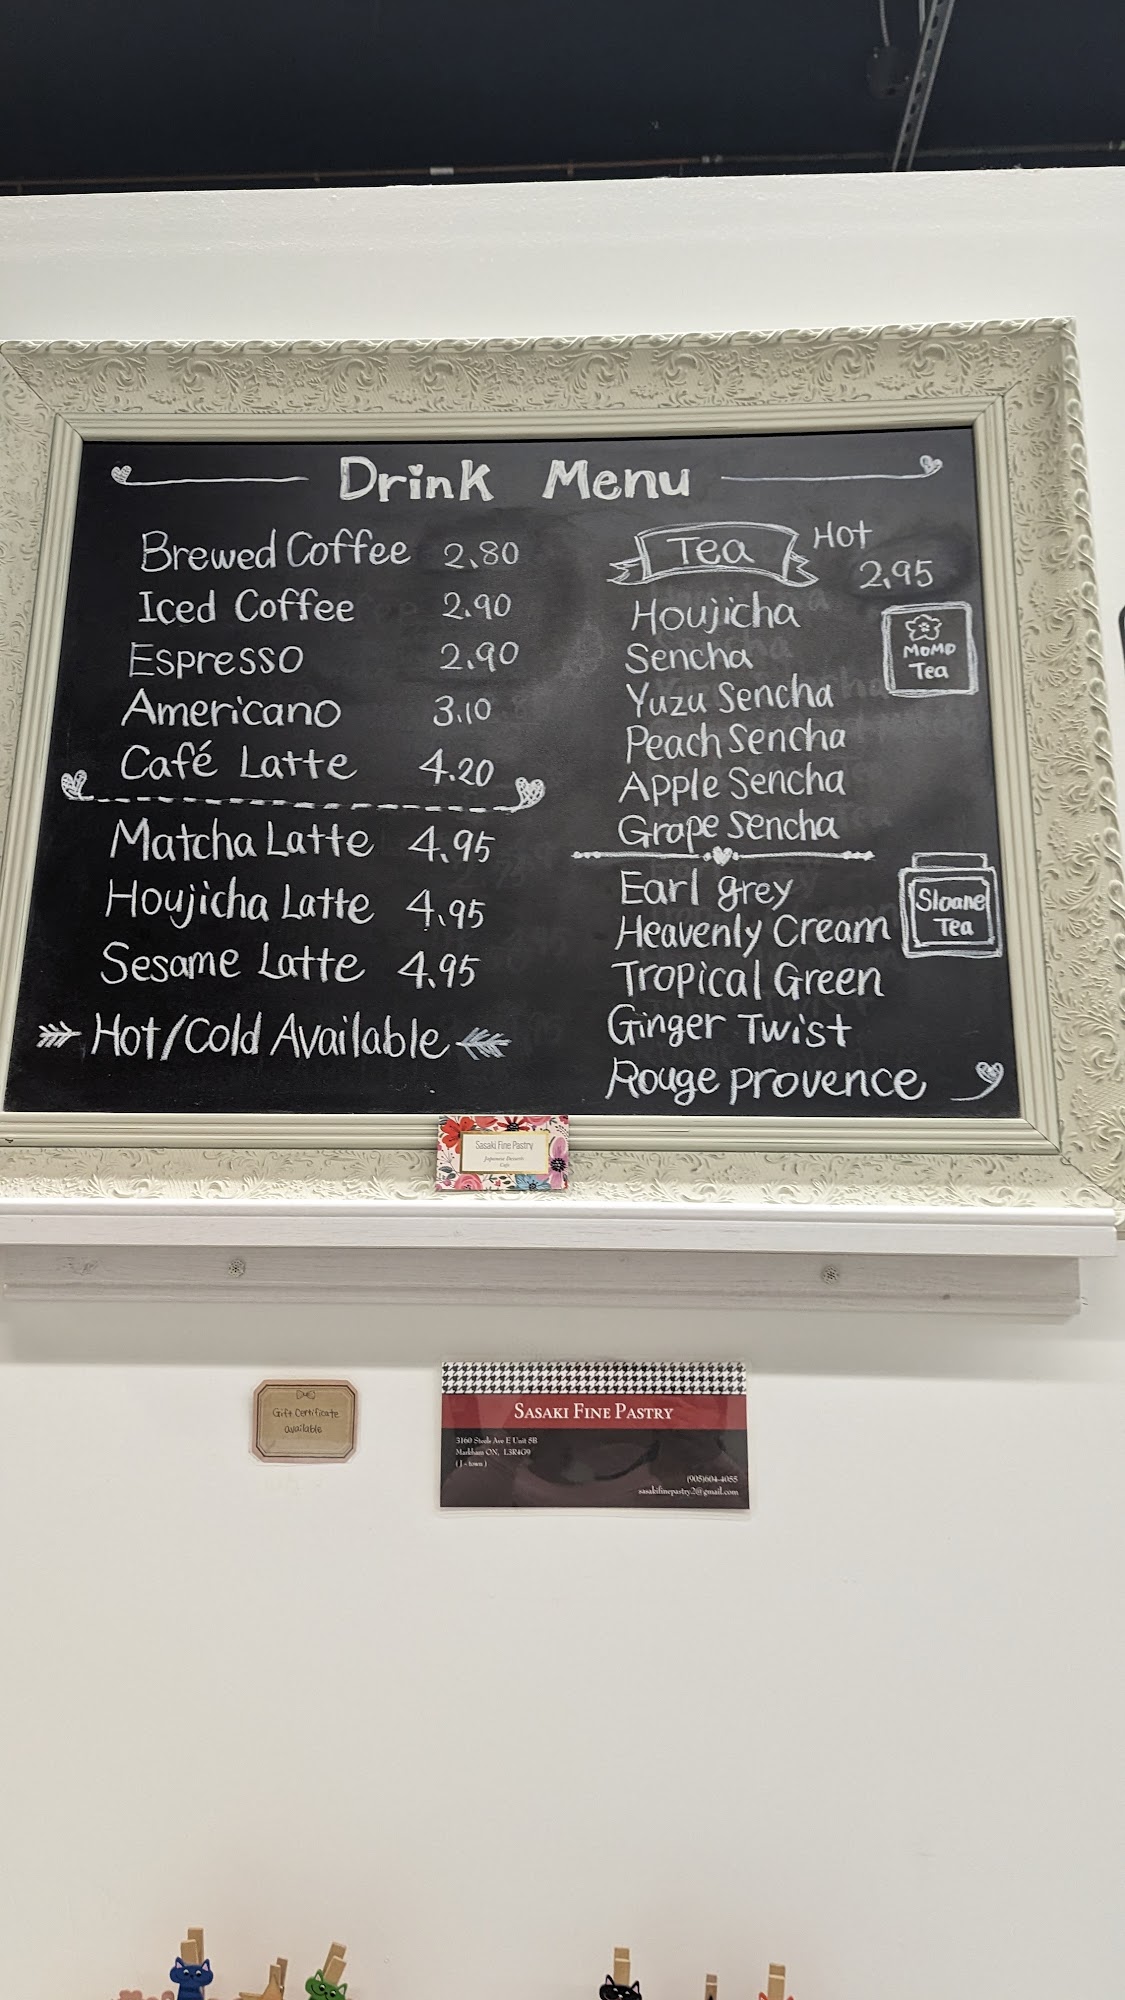 Drink Menu
Brewed Coffee 2.80
Iced Coffee 2.90
Espresso 2.90
Americano 3.10
Café Latte 4.20
Matcha Latte 4.95
Houjicha Latte 4.95
Sesame Latte 4.95
Hot/Cold Available
Tea Hot
2.95
Houjicha
Sencha
Yuzu Sencha
Peach Sencha
Apple Sencha
Grape Sencha
MOMO
Tea
Earl grey
Heavenly Cream
Tropical Green
Ginger Twist
Rouge provence
Sloane
Tea
Sasaki Fine Pastry
Japanese Desserts
Cafe
Gift Certificate
available
SASAKI FINE PASTRY
3160 Steels Ave E Unit 5B
Markham ON, L3R4G9
( J - town )
(905)604-4055
sasakifinepastry.2@gmail.com